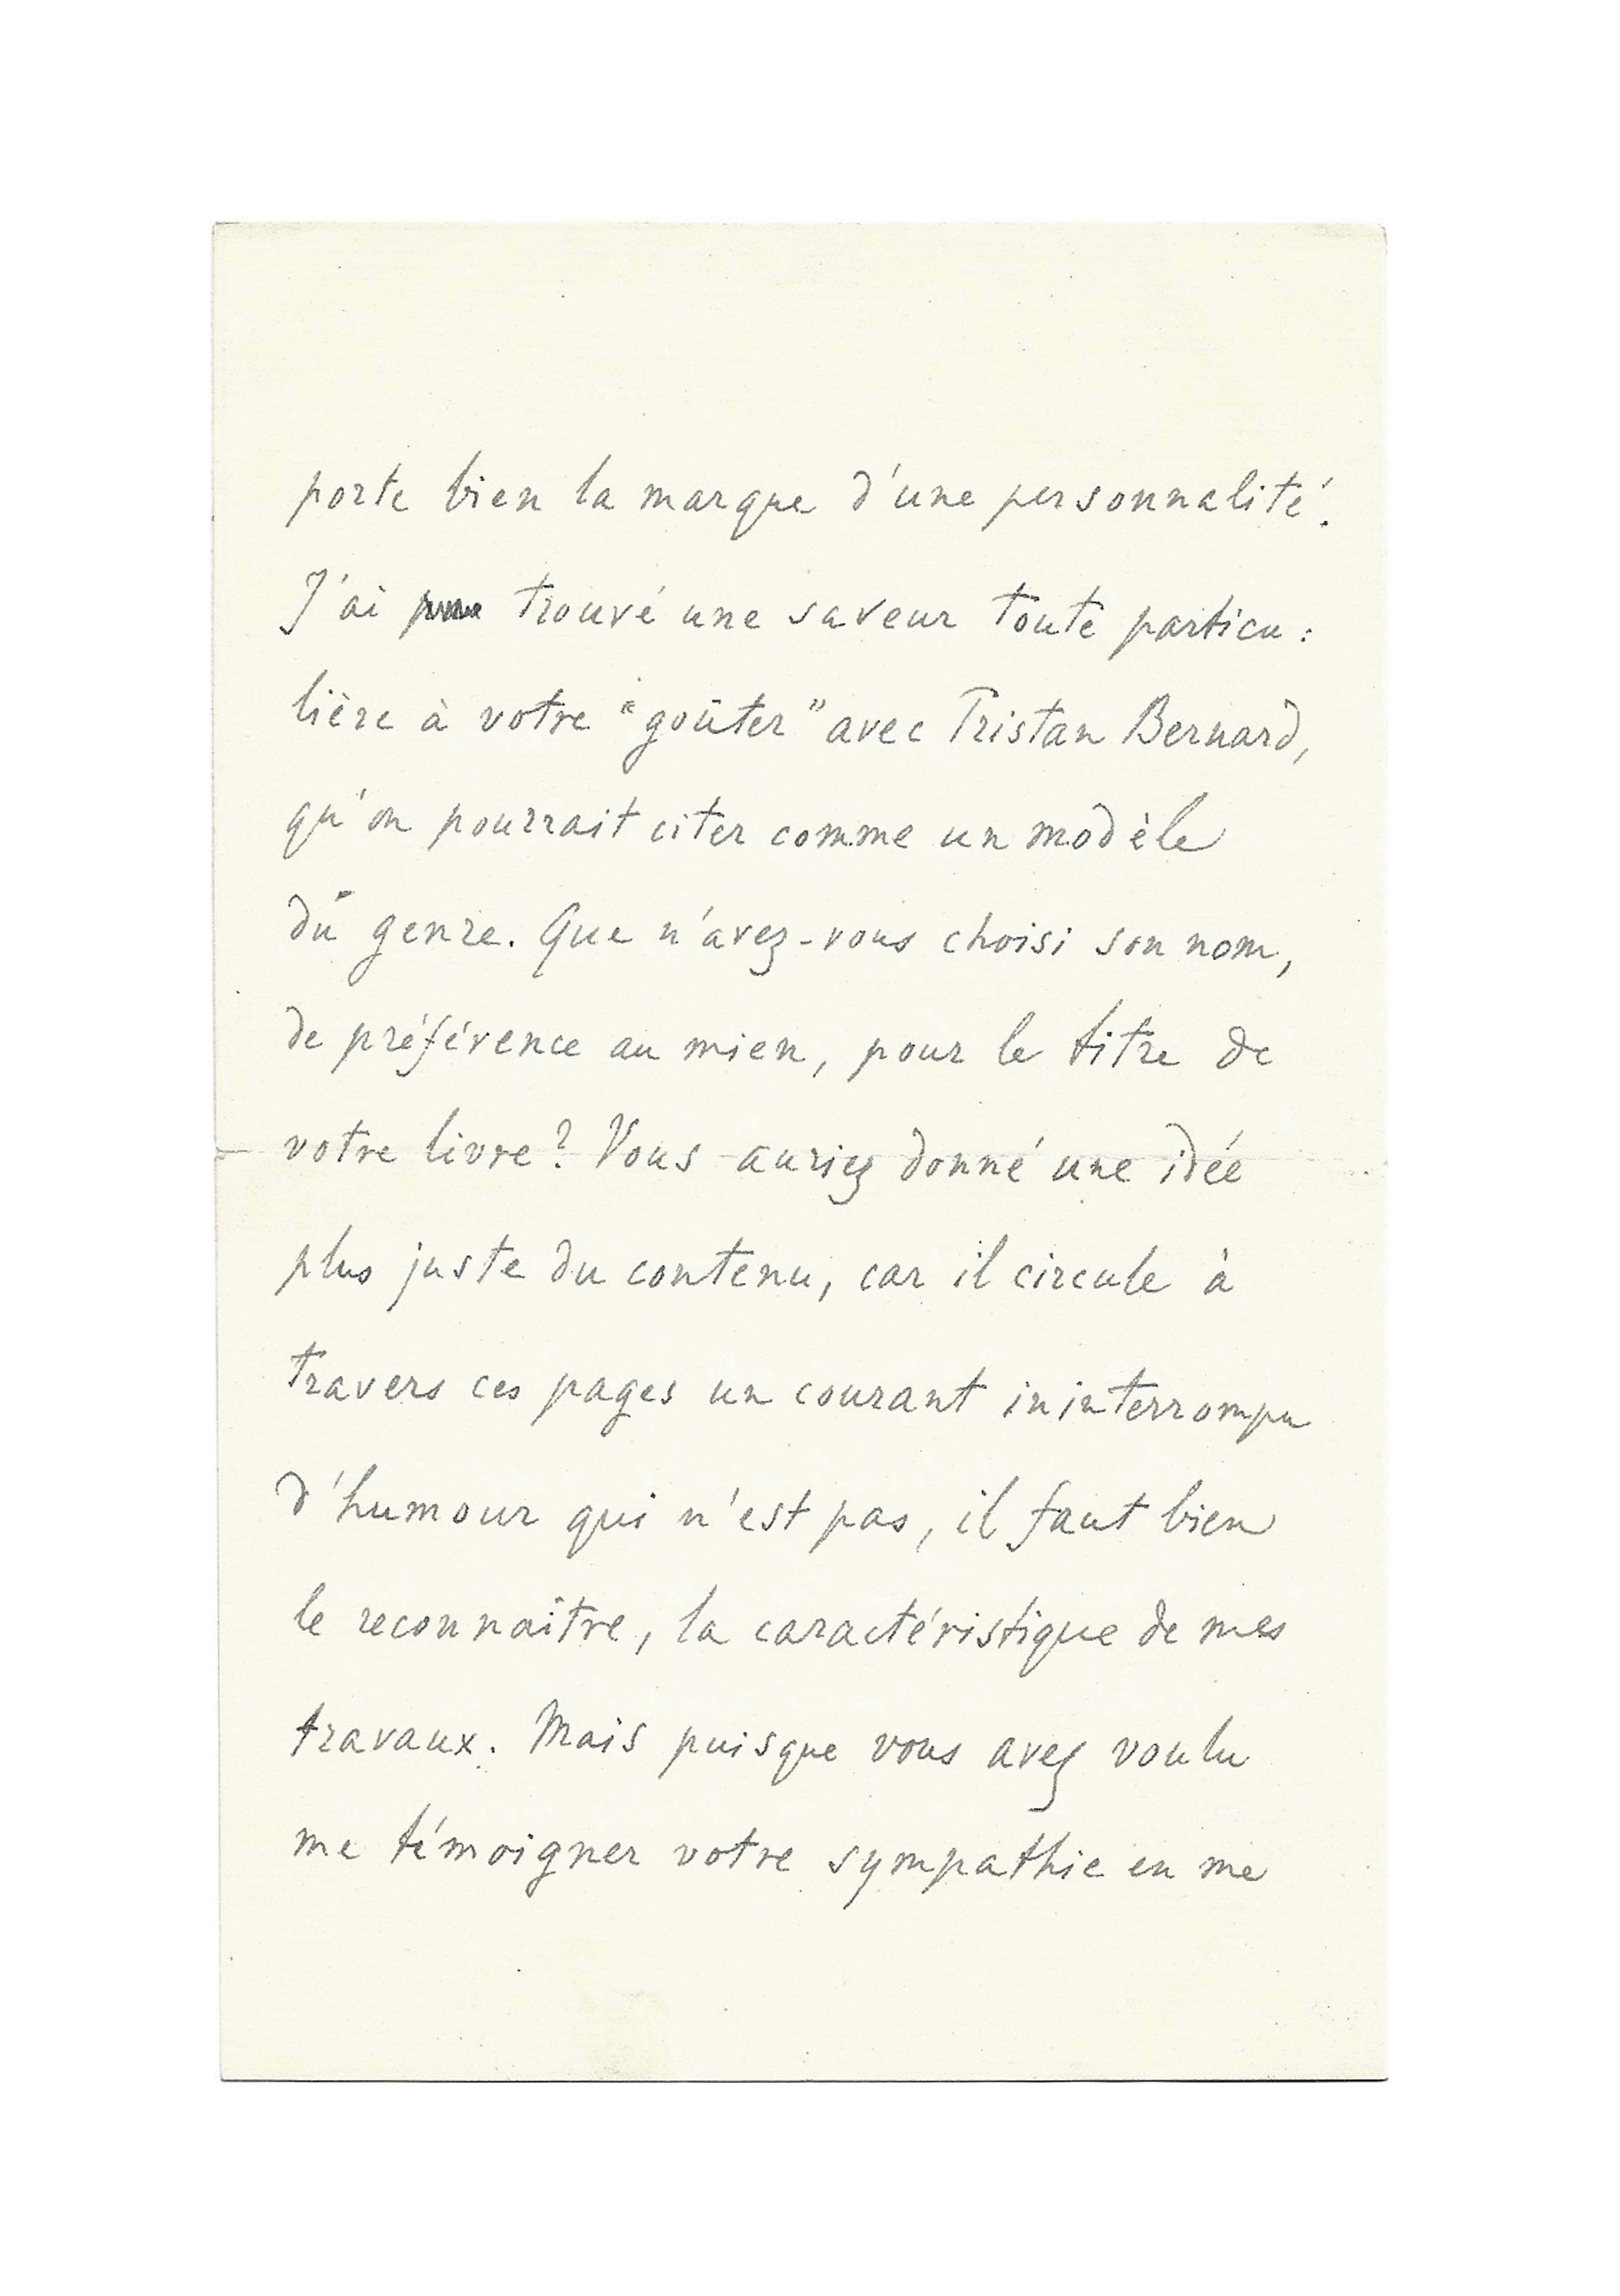 porte bien la marque d'une personnalité.
J'ai trouvé une saveur toute particu:
lière à votre "goûter" avec Tristan Bernard,
qu'on pourrait citer comme un modèle
du genre. Que n'avez-vous choisi son nom,
de préférence au mien, pour le titre de
votre livre? Vous auriez donné une idée
plus juste du contenu, car il circule à
travers ces pages un courant ininterrompu
d'humour qui n'est pas, il faut bien
le reconnaître, la caractéristique de mes
travaux. Mais puisque vous avez voulu
me témoigner votre sympathie en me